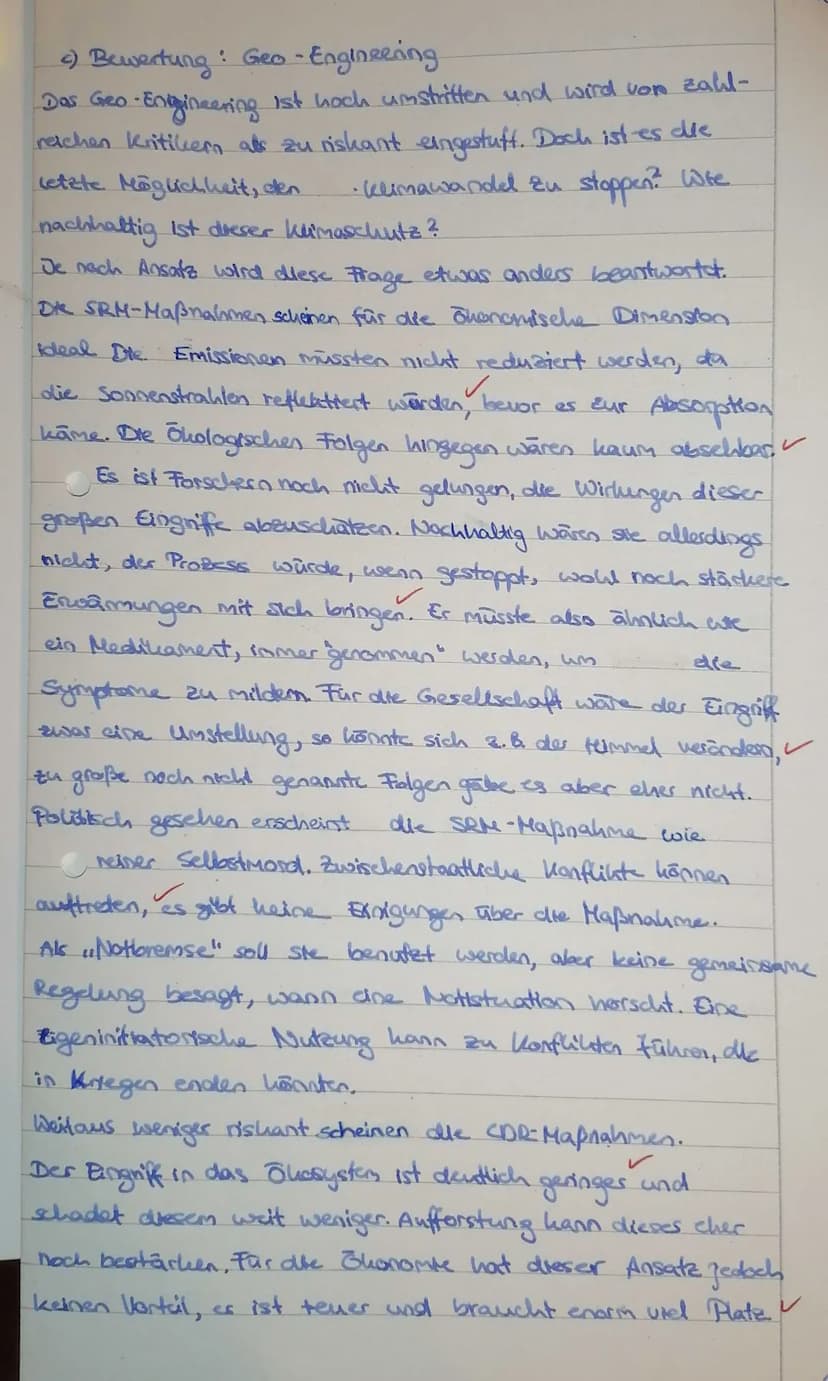 c) Bewertung: Geo-Engineering
Das Geo-Engineering ist hoch umstritten und wird von zahl-
reichen Kritikern als zu riskant eingestuft. Doch ist es die
letzte Möglichkeit, den Klimawandel zu stoppen? Wie
nachhaltig ist dieser Klimaschutz?
Je nach Ansatz wird diese Frage etwas anders beantwortet.
Die SRM-Maßnahmen scheinen für die Ökonomische Dimension
ideal Die Emissionen müssten nicht reduziert werden, da
die Sonnenstrahlen reflektiert würden, bevor es zur Absorption
käme. Die Ökologischen Folgen hingegen wären kaum absehbar.
Es ist Forschern noch nicht gelungen, die Wirkungen dieser
großen Eingriffe abzuschätzen. Nachhaltig wären sie allerdings
nicht, der Prozess würde, wenn gestoppt, wohl noch stärkere
Erwärmungen mit sich bringen. Er müsste also ähnlich wie
ein Medikament, immer "genommen" werden, um die
Symptome zu mildern. Für die Gesellschaft wäre der Eingriff
zwar eine Umstellung, so könnte sich z.B. der Himmel verändern,
zu große noch nicht genannte Folgen gäbe es aber eher nicht.
Politisch gesehen erscheint die SRM-Maßnahme wie
reiner Selbstmord. Zwischenstaatliche Konflikte können
auftreten, es gibt keine Einigungen über die Maßnahme.
Als „Notbremse" soll sie benutzt werden, aber keine gemeinsame
Regelung besagt, wann eine Notsituation herrscht. Eine
Eigeninitiatorische Nutzung kann zu Konflikten führen, die
in Kriegen enden könnten.
Weitaus weniger riskant scheinen die CDR-Maßnahmen.
Der Eingriff in das Ökosystem ist deutlich geringer und
schadet diesem weit weniger. Aufforstung kann dieses eher
noch bestärken. Für die Ökonomie hat dieser Ansatz jedoch
keinen Vorteil, es ist teuer und braucht enorm viel Platz